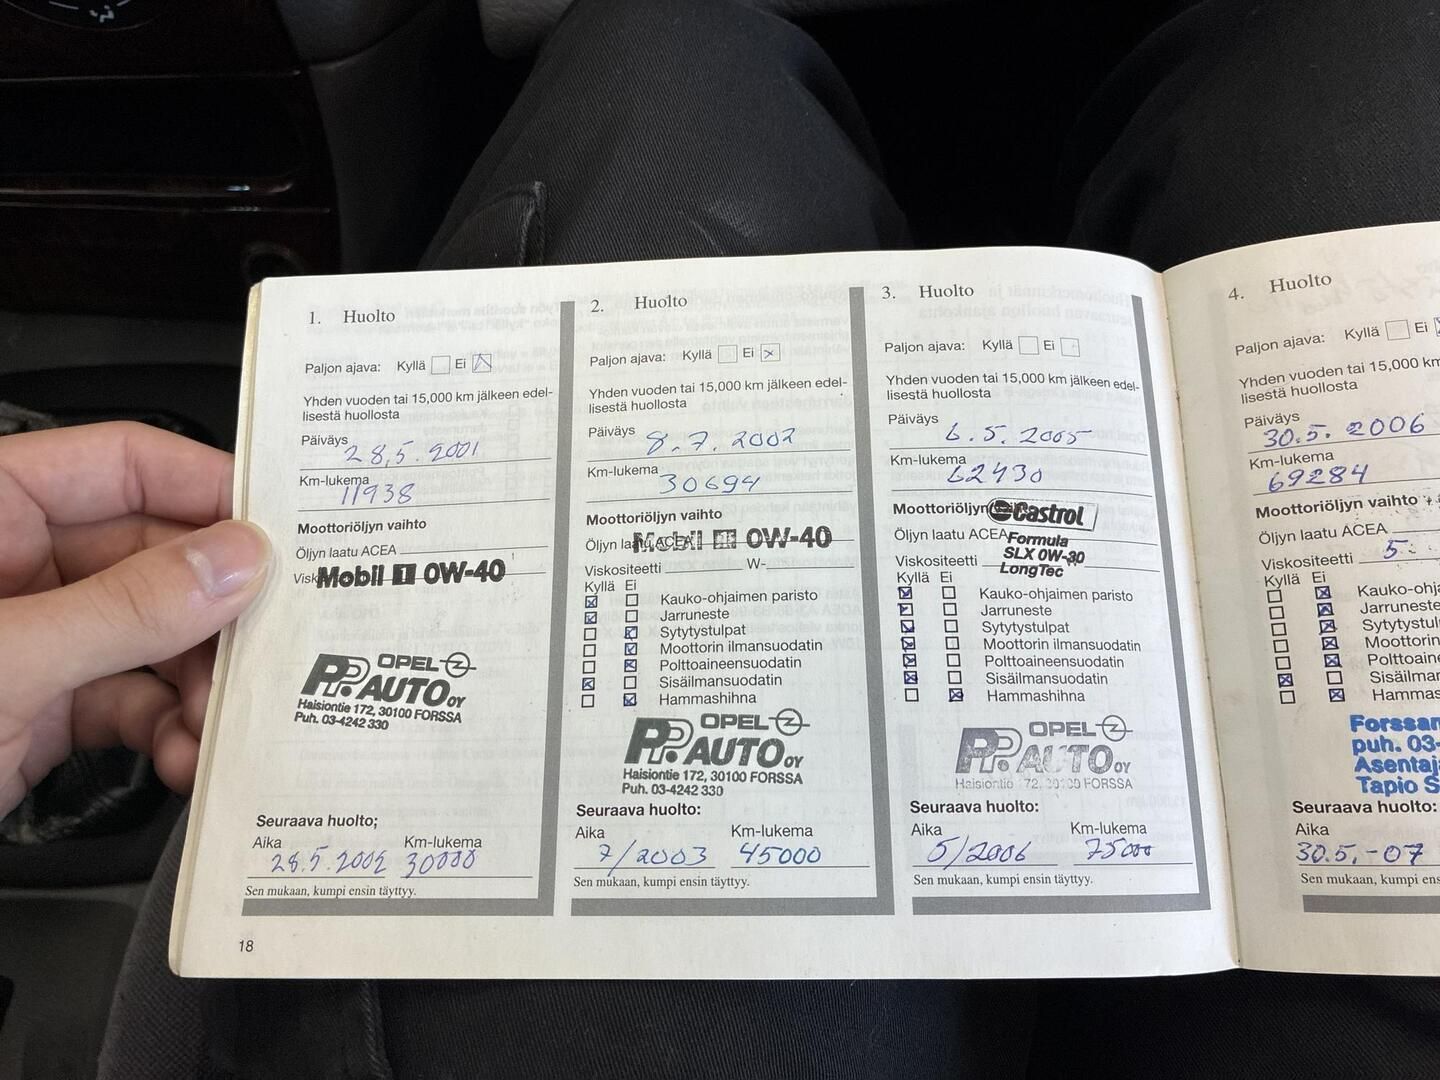 1. Huolto
Paljon ajava: Kyllä Ei
Yhden vuoden tai 15,000 km jälkeen edel-
lisestä huollosta
Päiväys 28.5.2001
Km-lukema 11938
Moottoriöljyn vaihto
Öljyn laatu ACEA
Visk
Mobil 1 0W-40
OPEL
PP. AUTO OY
Haisiontie 172, 30100 FORSSA
Puh. 03-4242 330
Seuraava huolto;
Aika Km-lukema
28.5.2002 30000
Sen mukaan, kumpi ensin täyttyy.
18
2. Huolto
Paljon ajava: Kyllä Ei
Yhden vuoden tai 15,000 km jälkeen edel-
lisestä huollosta
Päiväys 8.7.2002
Km-lukema 30694
Moottoriöljyn vaihto
Öljyn laatu ACEA
Mobil 1 0W-40
Viskositeetti W-
Kyllä Ei
Kauko-ohjaimen paristo
Jarruneste
Sytytystulpat
Moottorin ilmansuodatin
Polttoaineensuodatin
Sisäilmansuodatin
Hammashihna
OPEL
PP. AUTO OY
Haisiontie 172, 30100 FORSSA
Puh. 03-4242 330
Seuraava huolto:
Aika Km-lukema
7/2003 45000
Sen mukaan, kumpi ensin täyttyy.
3. Huolto
Paljon ajava: Kyllä Ei
Yhden vuoden tai 15,000 km jälkeen edel-
lisestä huollosta
Päiväys 6.5.2005
Km-lukema 62430
Moottoriöljyn
Castrol
Öljyn laatu ACEA
Formula
SLX 0W-30
LongTec
Viskositeetti
Kyllä Ei
Kauko-ohjaimen paristo
Jarruneste
Sytytystulpat
Moottorin ilmansuodatin
Polttoaineensuodatin
Sisäilmansuodatin
Hammashihna
OPEL
PP. AUTO OY
Haisiontie 172, 30100 FORSSA
Seuraava huolto:
Aika Km-lukema
5/2006 75000
Sen mukaan, kumpi ensin täyttyy.
4. Huolto
Paljon ajava: Kyllä
Yhden vuoden tai 15,000 km
lisestä huollosta
Päiväys 30.5.2006
Km-lukema 69284
Moottoriöljyn vaihto
Öljyn laatu ACEA
Viskositeetti 5
Kyllä Ei
Kauko-o
Jarruneste
Sytytystulp
Moottorin
Polttoaine
Sisäilman
Hammas
Forssan
puh. 03-
Asentaj
Tapio S
Seuraava huolto:
Aika
30.5.-07
Sen mukaan, kumpi ens